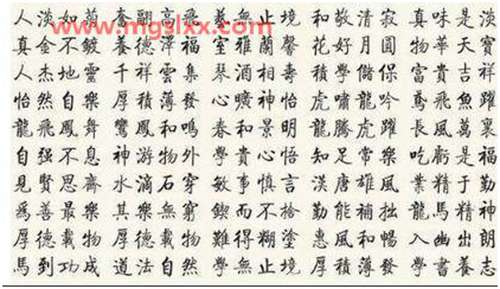 www.mgslxx.com
人淡如菊 奮翮高飛 藝無止境 和敬清寂 真味是淡
真金不鍍 養德澤福 室雅蘭馨 花好月圓 物華天寶
人杰地靈 千祥雲集 琴酒相壽 積學儲保 富貴吉祥
怡然自樂 厚積薄發 心曠神怡 虎嘯龍吟 鳶飛魚躍
龍飛鳳舞 鸞鳳和鳴 春和景明 龍騰虎躍 長風萬裏
自强不息 神游物外 學貴心悟 知足常樂 吃虧是福
見賢思齋 水滴石穿 敏事慎言 漢唐雄風 業精于勤
爲善最樂 其樂無窮 鍥而不捨 勤能補拙 龍馬精神
厚德載物 厚德載物 難得糊塗 惠風和暢 入幽出朗
馬到功成 道法自然 學無止境 厚積薄發 學書養志